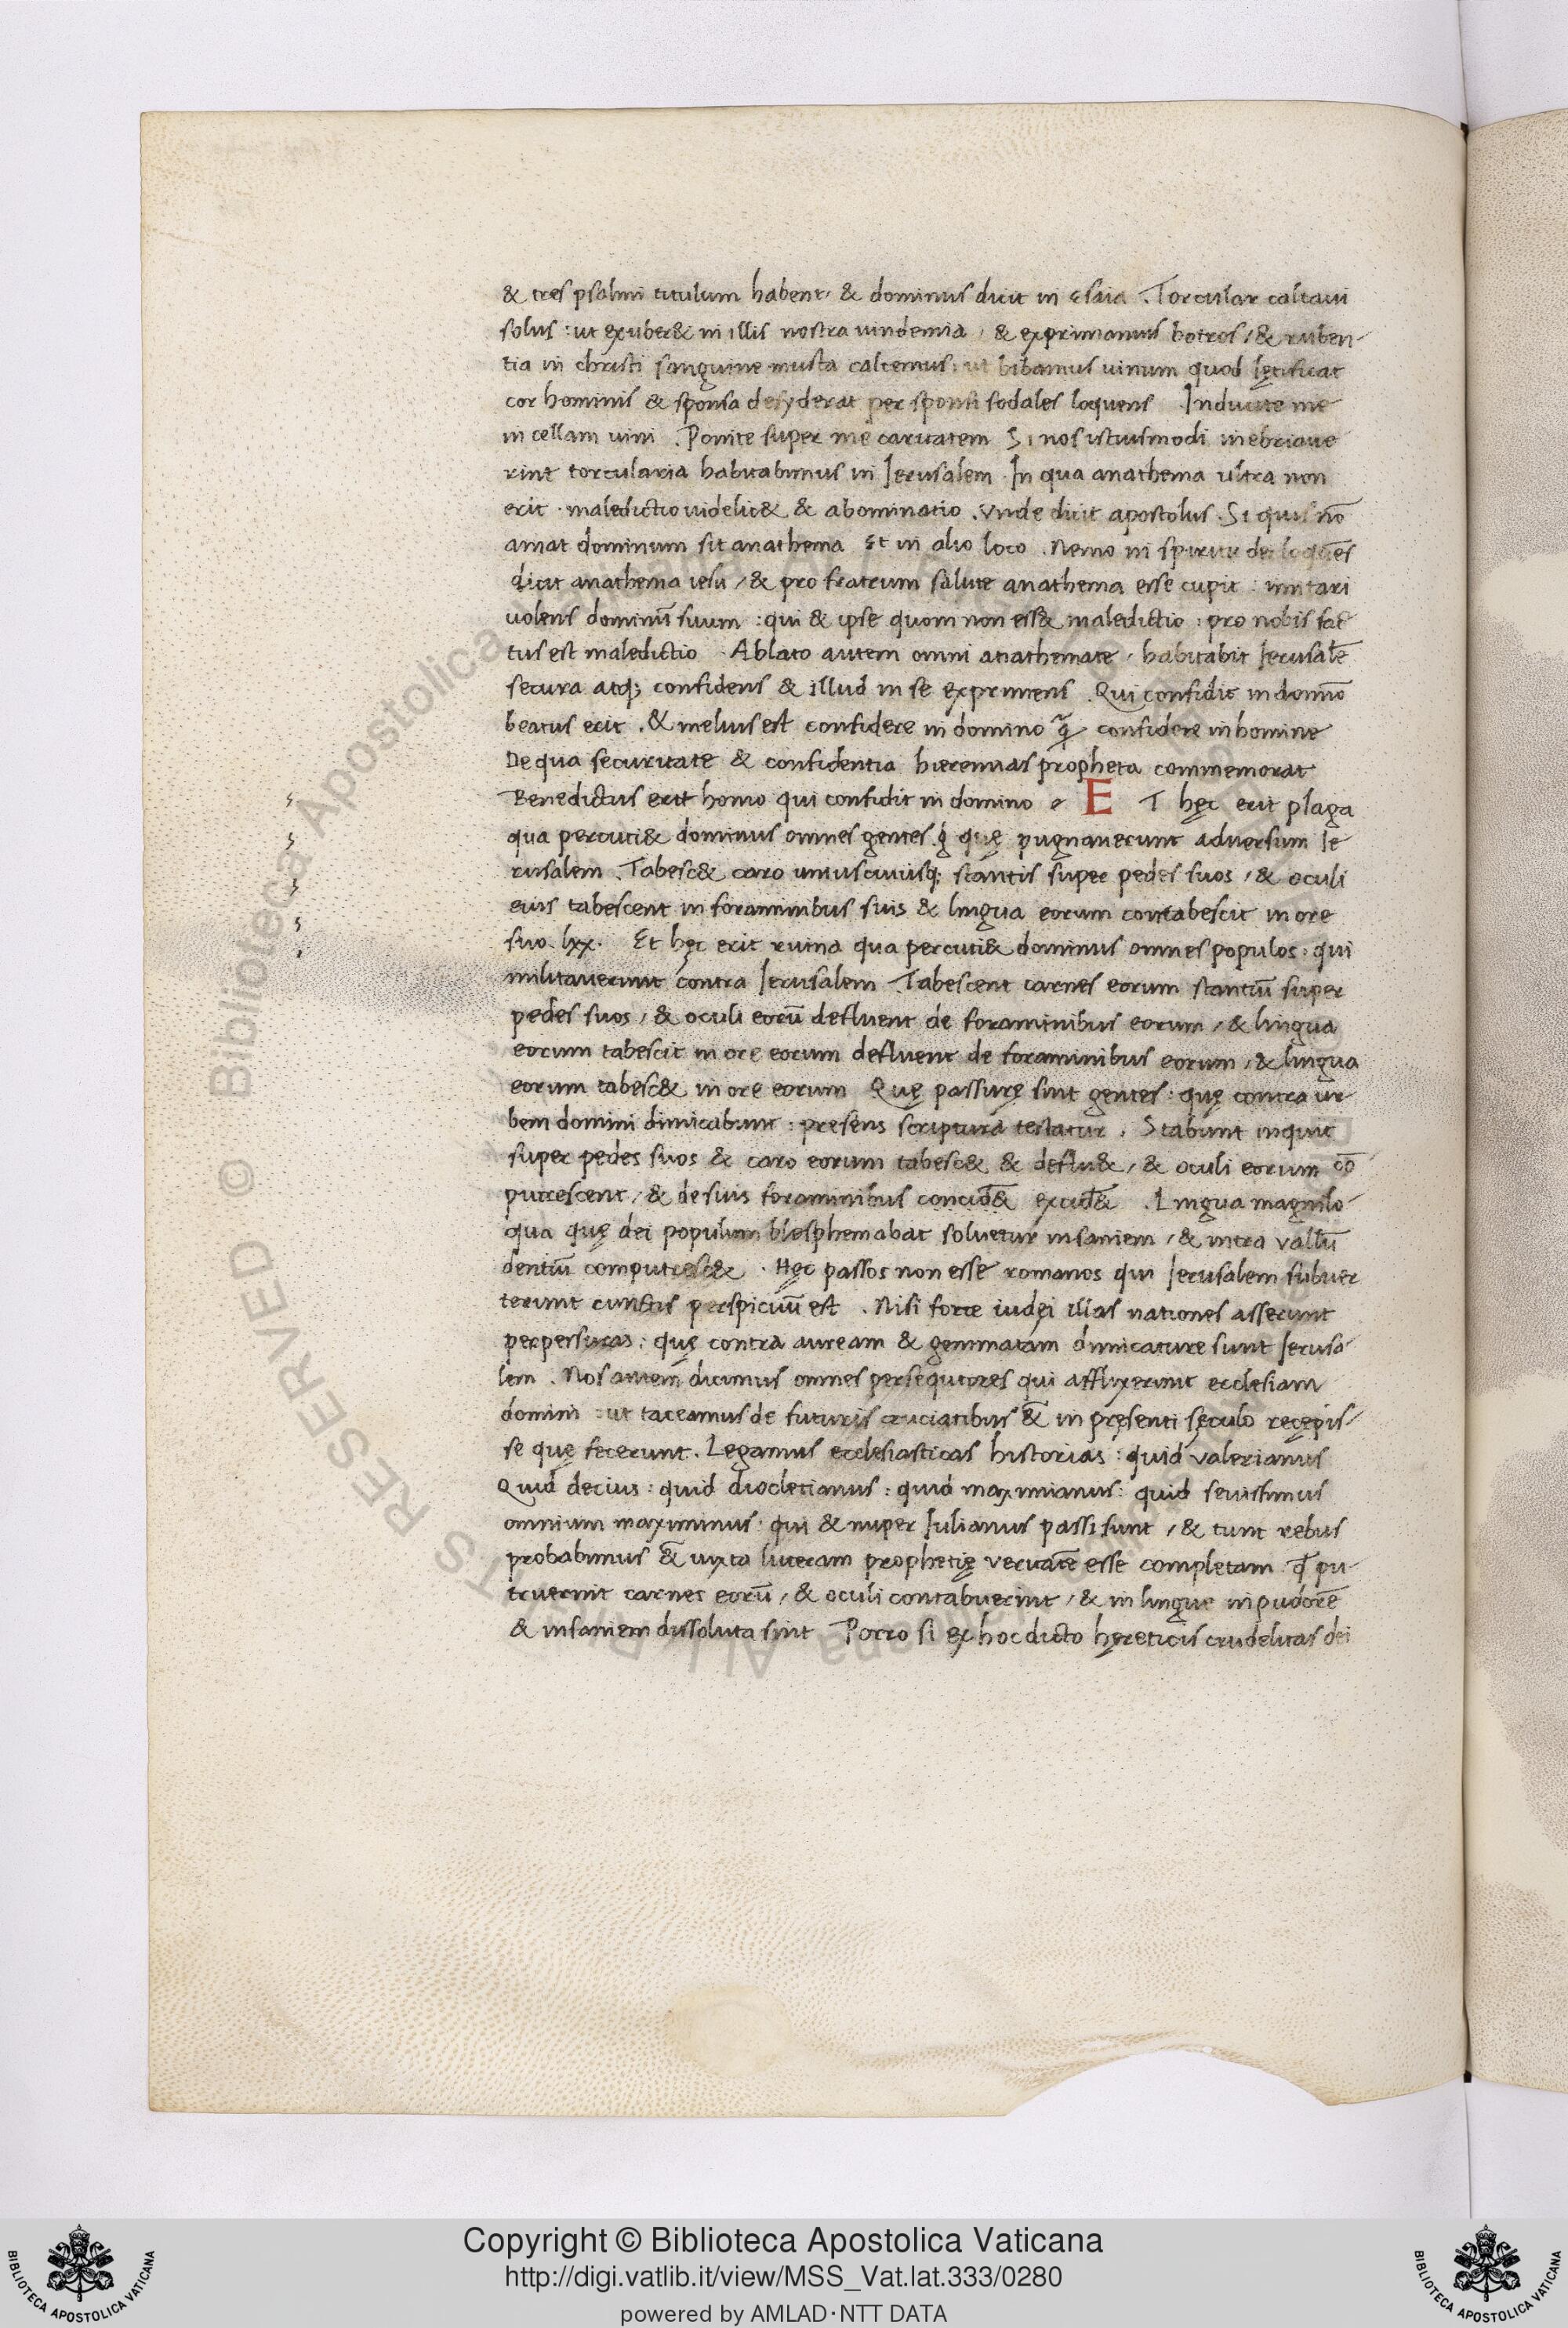 & tres psalmi titulum habent, & dominus dicit in esaia . Torcular calcaui
solus : ut exuber& in illis nostra uindemia , & exprimamus botros , & ruben-
tia in christi sanguine musta calcemus : ut bibamus uinum quod lętificat
cor hominis & sponsa desyderat per sponsi sodales loquens Inducite me
in cellam uini . Ponite super me caritatem Si nos istiusmodi inebriaue
rint torcularia habitabimus in Ierusalem . In qua anathema ultra non
erit . maledictio uidelic& & abominatio . Vnde dicit apostolus . Si quis nō
amat dominum sit anathema Et in alio loco . Nemo in spiritu dei loquēs
dicit anathema iesu , & pro fratrum salute anathema esse cupit : imitari
uolens dominū suum : qui & ipse quom non ess& maledictio : pro nobis fac
tus est maledictio . Ablato autem omni anathemate , habitabit Ierusalē
secura atq; confidens & illud in se exprimens . Qui confidit in domīo
beatus erit . & melius est confidere in domino q̃ confidere in homine
De qua securitate & confidentia hieremias propheta commemorat
Benedictus erit homo qui confidit in domino E T hęc erit plaga
qua percuti& dominus omnes gentes . quę pugnauerunt aduersum Ie
rusalem . Tabesc& caro uniuscuiusq; stantis super pedes suos , & oculi
eius tabescent in foraminibus suis & lingua eorum contabescit in ore
suo . lxx . Et hęc erit ruina qua percuti& dominus omnes populos : qui
militauerunt contra Ierusalem . Tabescent carnes eorum stantiū super
pedes suos , & oculi eorū defluent de foraminibus eorum , & lingua
eorum tabescit in ore eorum defluent de foraminibus eorum , & lingua
eorum tabesc& in ore eorum Quę passurę sint gentes : quę contra ur
bem domini dimicabunt : presens scriptura testatur . Stabunt inquit
super pedes suos & caro eorum tabesc& & deflu& , & oculi eorum cō
putrescent , & de suis foraminibus concid& excid& . Lingua magnilo
qua quę dei populum blesphemabat soluetur in saniem , & intra vallū
dentiū computresc& . Hęc passos non esse romanos qui Ierusalem subuer
terunt cunctis perspicuū est . Nisi forte iudęi illas nationes asserunt
perpersuras : quę contra auream & gemmatam dimicature sunt Ierusa
lem . Nos autem dicimus omnes persequtores qui afflixerunt ecclesiam
domini : ut taceamus de futuris cruciatibus & in pręsenti sęculo recępis-
se quę fecerunt . Legamus ecclesiasticas historias : quid valerianus
Quid decius : quid diocletianus : quid maximianus : quid seuissimus
omnium maximinus . qui & nuper Iulianus passi sunt , & tunt rebus
probabimus & iuxta litteram prophetię veritatē esse completam . q̄ pu-
truerint carnes eorū , & oculi contabuerint , & in lingue in pudorē
& in saniem dissoluta sint Porro si ex hoc dicto hęreticis crudelitas dei
Copyright © Biblioteca Apostolica Vaticana
http://digi.vatlib.it/view/MSS_Vat.lat.333/0280
powered by AMLAD·NTT DATA